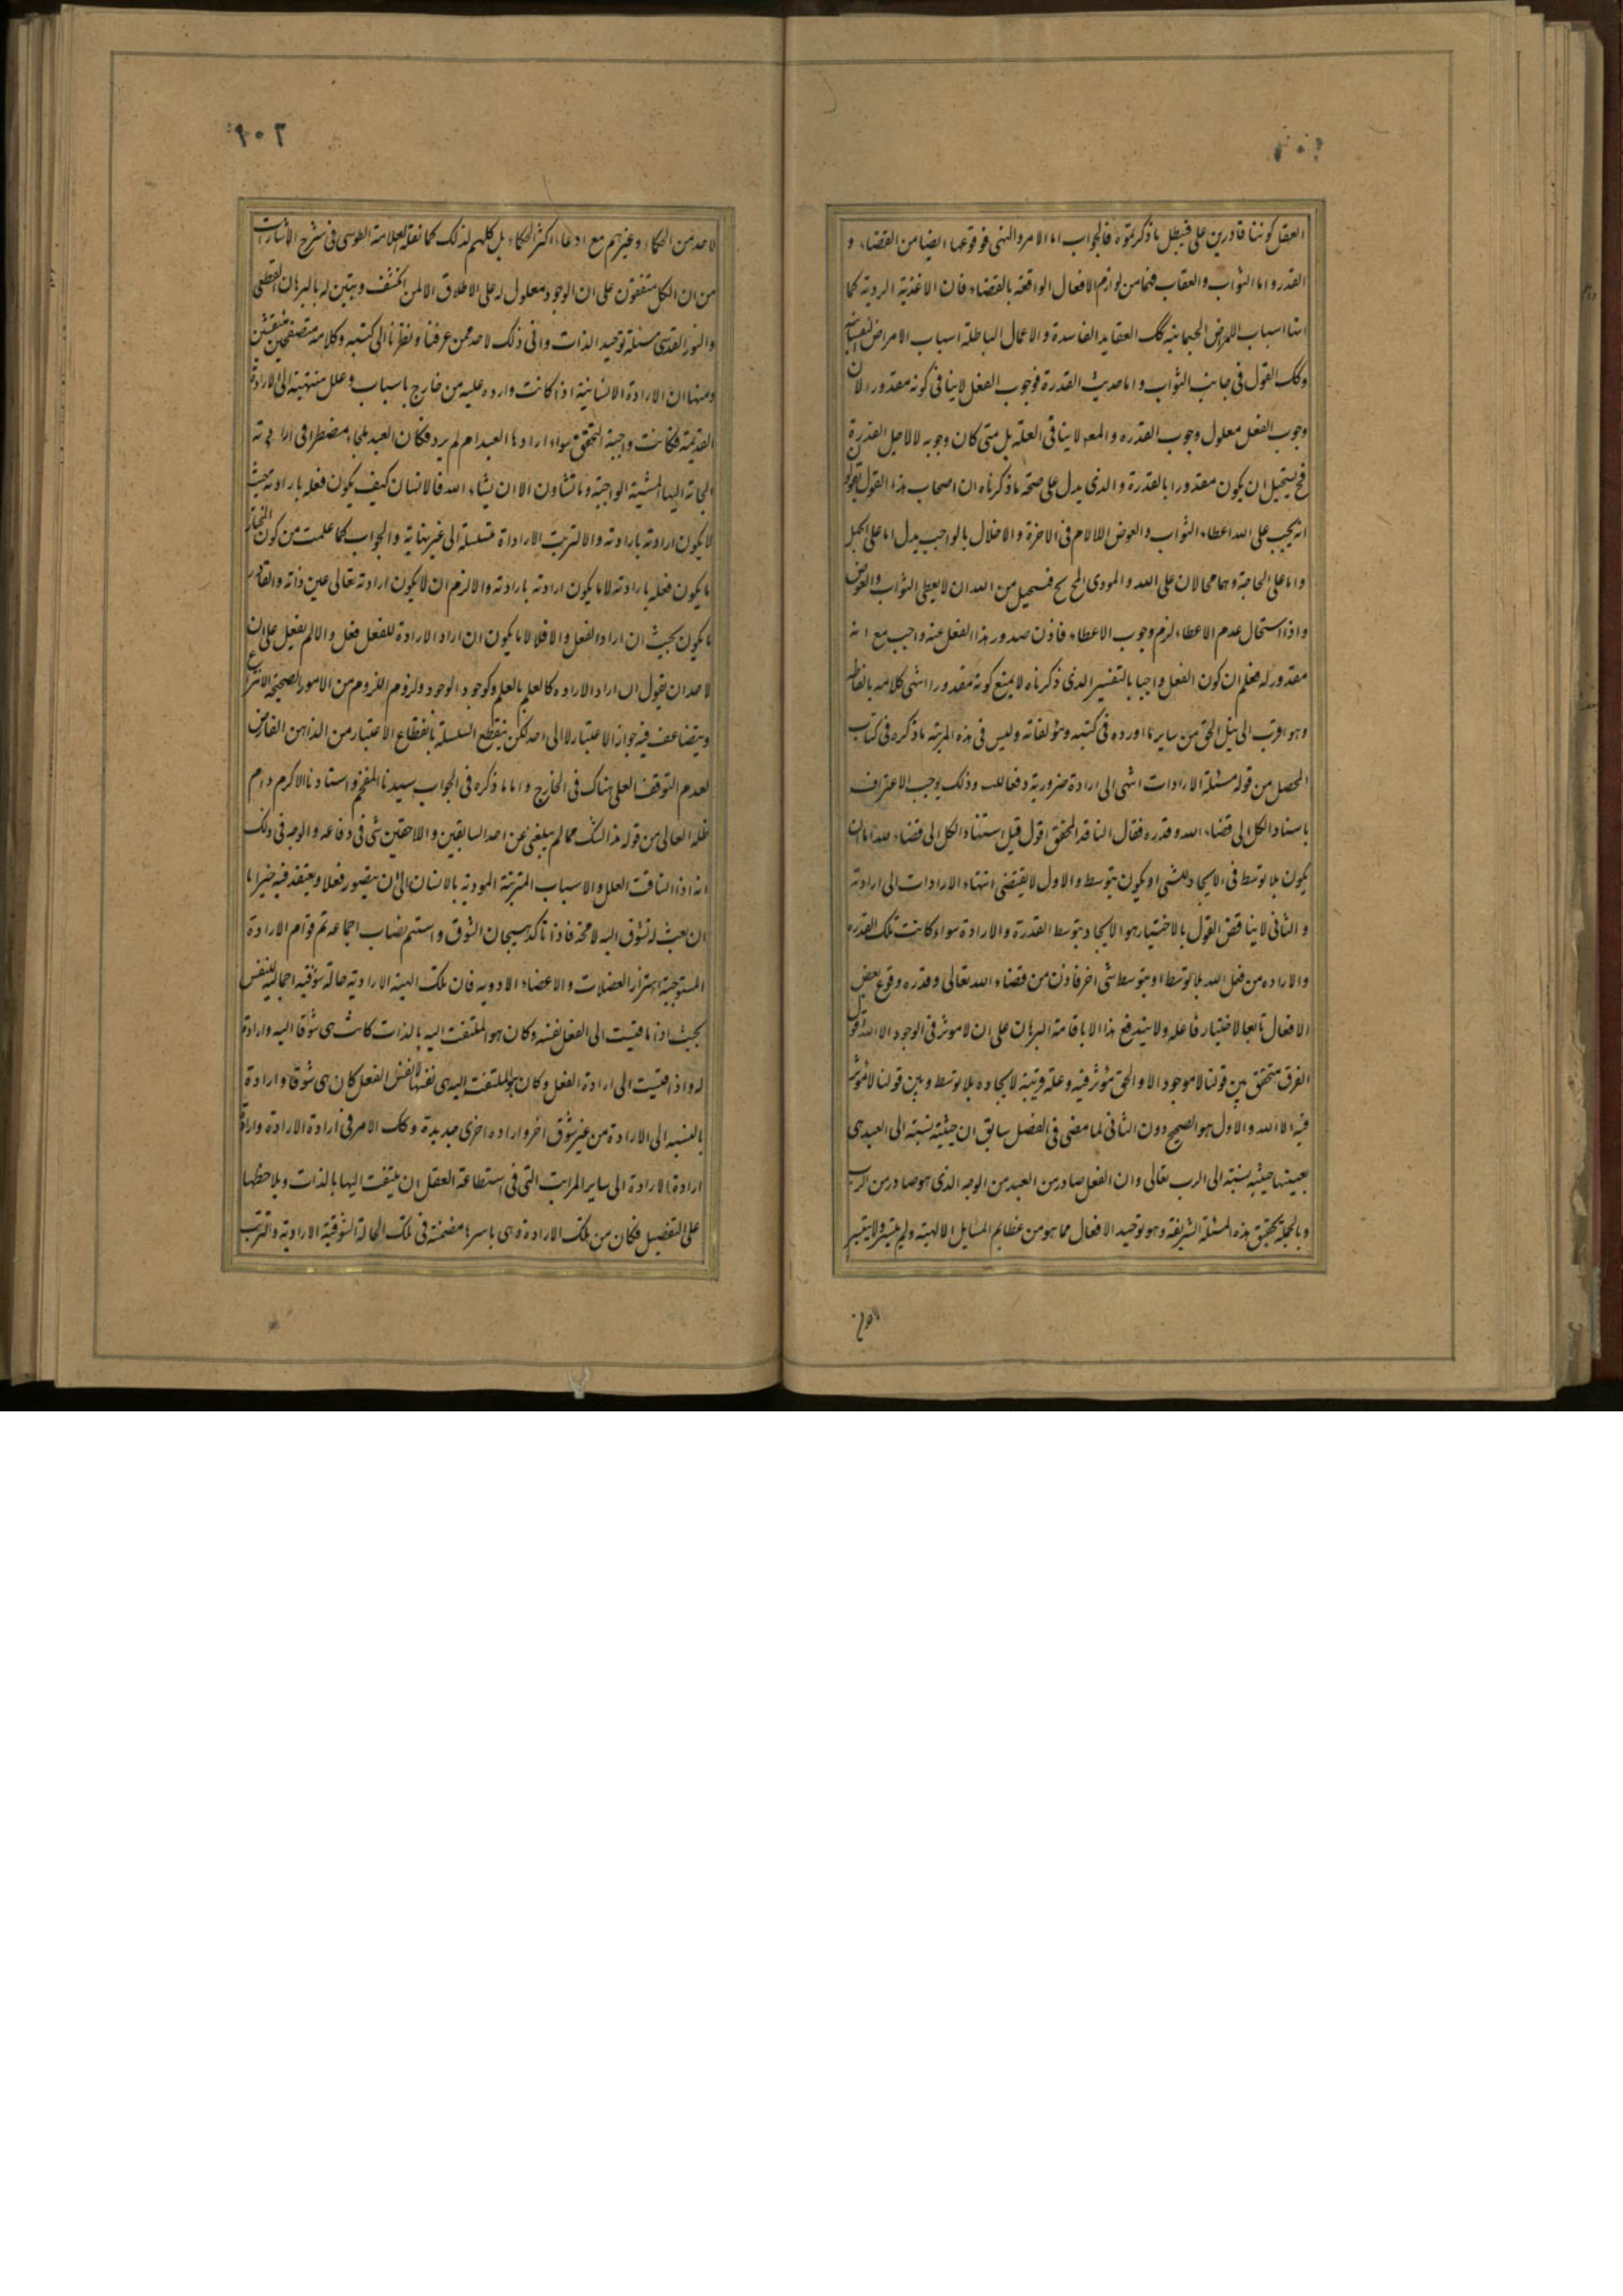 العقل كوننا قادرين على فيبطل ما ذكرتموه فالجواب اما الامر والنهى فوقوعهما ايضا من القضاء و
القدر و اما الثواب والعقاب فهما من لوازم الافعال الواقعة بالقضاء فان الاغذية الردية كما
انها اسباب للامراض الجسمانية كك العقايد الفاسدة و الاعمال الباطلة اسباب الامراض النفسانية
وكك القول فى جانب الثواب و اما حديث القدرة فوجوب الفعل لا ينافى كونه مقدورا لان
وجوب الفعل معلول وجوب القدره و المعه لا ينافى العلة بل متى كان وجوبه لا لاجل القدرة
فح يستحيل ان يكون مقدورا بالقدرة و الذى يدل على صحة ما ذكرناه ان اصحاب هذا القول يقولو
انه يجب على الله اعطاء الثواب و العوض للالام فى الاخرة و الاخلال بالواجب يدل اما على الجهل
واما على الحاجة وهما محالان على الله و المودى الى المح مح فيستحيل من الله ان لا يعطى الثواب والعوض
و اذا استحال عدم الاعطاء لزم وجوب الاعطاء فاذن صدور هذا الفعل عنه واجب مع انه
مقدور له فعلم ان كون الفعل واجبا بالتفسير الذى ذكرناه لا يمنع كونه مقدورا انتهى كلامه بالفاظه
وهو اقرب الى نيل الحق من ساير ما اورده فى كتبه و مؤلفاته وليس فى هذه المرتبة ما ذكره فى كتاب
المحصل من قوله مسئلة الارادات انتهى الى ارادة ضرورية دفعا للتس وذلك يوجب الاعتراف
باسناد الكل الى قضاء الله و قدره فقال الناقد المحقق اقول قيل استناد الكل الى قضاء الله اما ان
يكون بلا توسط فى الايجاد للشى او يكون بتوسط و الاول لا يقتضى انتهاء الارادات الى ارادته
و الثانى لا يناقض القول بالاختيار هو الايجاد بتوسط القدرة والارادة سواء كانت تلك القدره
والاراده من فعل الله بلا توسط او بتوسط شى اخر فاذن من قضاء الله تعالى و قدره وقوع بعض
الافعال تابعا لاختيار فاعله ولا يندفع هذا الا باقامة البرهان على ان لا موثر فى الوجود الا الله قول
الفرق متحقق بين قولنا لا موجود الا و الحق مؤثر فيه و علة قريبة لايجاده بلا توسط و بين قولنا لا مؤثر
فيه الا الله و الاول هو الصحيح دون الثانى لما مضى فى الفصل سابق ان حيثية نسبته الى العبد هى
بعينها حيثية نسبته الى الرب تعالى وان الفعل صادر من العبد من الوجه الذى هو صادر من الرب
وبالجملة تحقيق هذه المسئلة الشريفة و هو توحيد الافعال مما هو من عظايم المسايل الالهية ولم يتيسر ولا يتيسر
لاحد من
١٠٢
لاحد من الحكماء و غيرهم مع ادعاء اكثر الحكماء بل كلهم لذلك كما نقله العلامة الطوسى فى شرح الاشارات
من ان الكل متفقون على ان الوجود معلول له على الاطلاق الا لمن انكشف و تبين له بالبرهان القطعى
والنور القدسى مسئلة توحيد الذات وانى ذلك لاحد ممن عرفنا و نظرنا الى كتبه وكلامه متصفحين متفتشين
ومنها ان الارادة الانسانية اذا كانت وارده عليه من خارج باسباب و علل منتهية الى الارادة
القديمة فكانت واجبة التحقق سواء ارادها العبد ام لم يرد فكان العبد ملجاء مضطرا فى ارادته
الجاته اليها المشية الواجبة وما تشاون الا ان يشاء الله فالانسان كيف يكون فعله بارادته حيث
لا يكون ارادته بارادته والا لترتبت الارادات متسلسلة الى غير نهاية والجواب كما علمت من كون المختار
ما يكون فعله بارادته لا ما يكون ارادته بارادته والا لزم ان لا يكون ارادته تعالى عين ذاته والقادر
ما يكون بحيث ان اراد الفعل والا فلا لا ما يكون ان اراد الارادة للفعل فعل والا لم يفعل على ان
لاحد ان يقول ان اراد الاراده كالعلم بالعلم وكوجود الوجود ولزوم اللزوم من الامور الصحيحة الانتزاع
ويتضاعف فيه جواز الاعتبار لا الى احد لكن ينقطع السلسلة بانقطاع الاعتبار من الذهن الفارض
لعدم التوقف العلى هناك فى الخارج و اما ما ذكره فى الجواب سيدنا المفخم و استادنا الاكرم دام
ظله العالى من قوله هذا الشك مما لم يبلغنى عن احد السابقين و اللاحقين شى فى دفاعه و الوجه فى ذلك
انه اذا انساقت العلل و الاسباب المترتبة المودية بالانسان الى ان يتصور فعلا و يعتقد فيه خيرا ما
ان بعث له تشوق اليه لا محة فاذا تاكد هيجان الشوق و استتم نصاب اجماعه تم قوام الارادة
المستوجبة اهتزاز العضلات و الاعضاء الادويه فان تلك الهيئة الارادية حالة شوقيه اجمالية للنفس
بحيث اذا ما قيست الى الفعل نفسه وكان هو الملتفت اليه بالذات كانت هى شوقا اليه وارادة
له واذا قيست الى ارادة الفعل وكان الملتفت اليه هى نفسها لا نفس الفعل كان هى شوقا و ارادة
بالنسبه الى الارادة من غير شوق اخر و اراده اخرى جديدة وكك الامر فى ارادة الارادة وارادة
ارادة الارادة الى ساير المراتب التى فى استطاعة العقل ان يلتفت اليها بالذات و يلاحظها
على التفصيل فكان من تلك الارادة وهى باسرها مضمنة فى تلك الحالة الشوقية الارادية والترتب